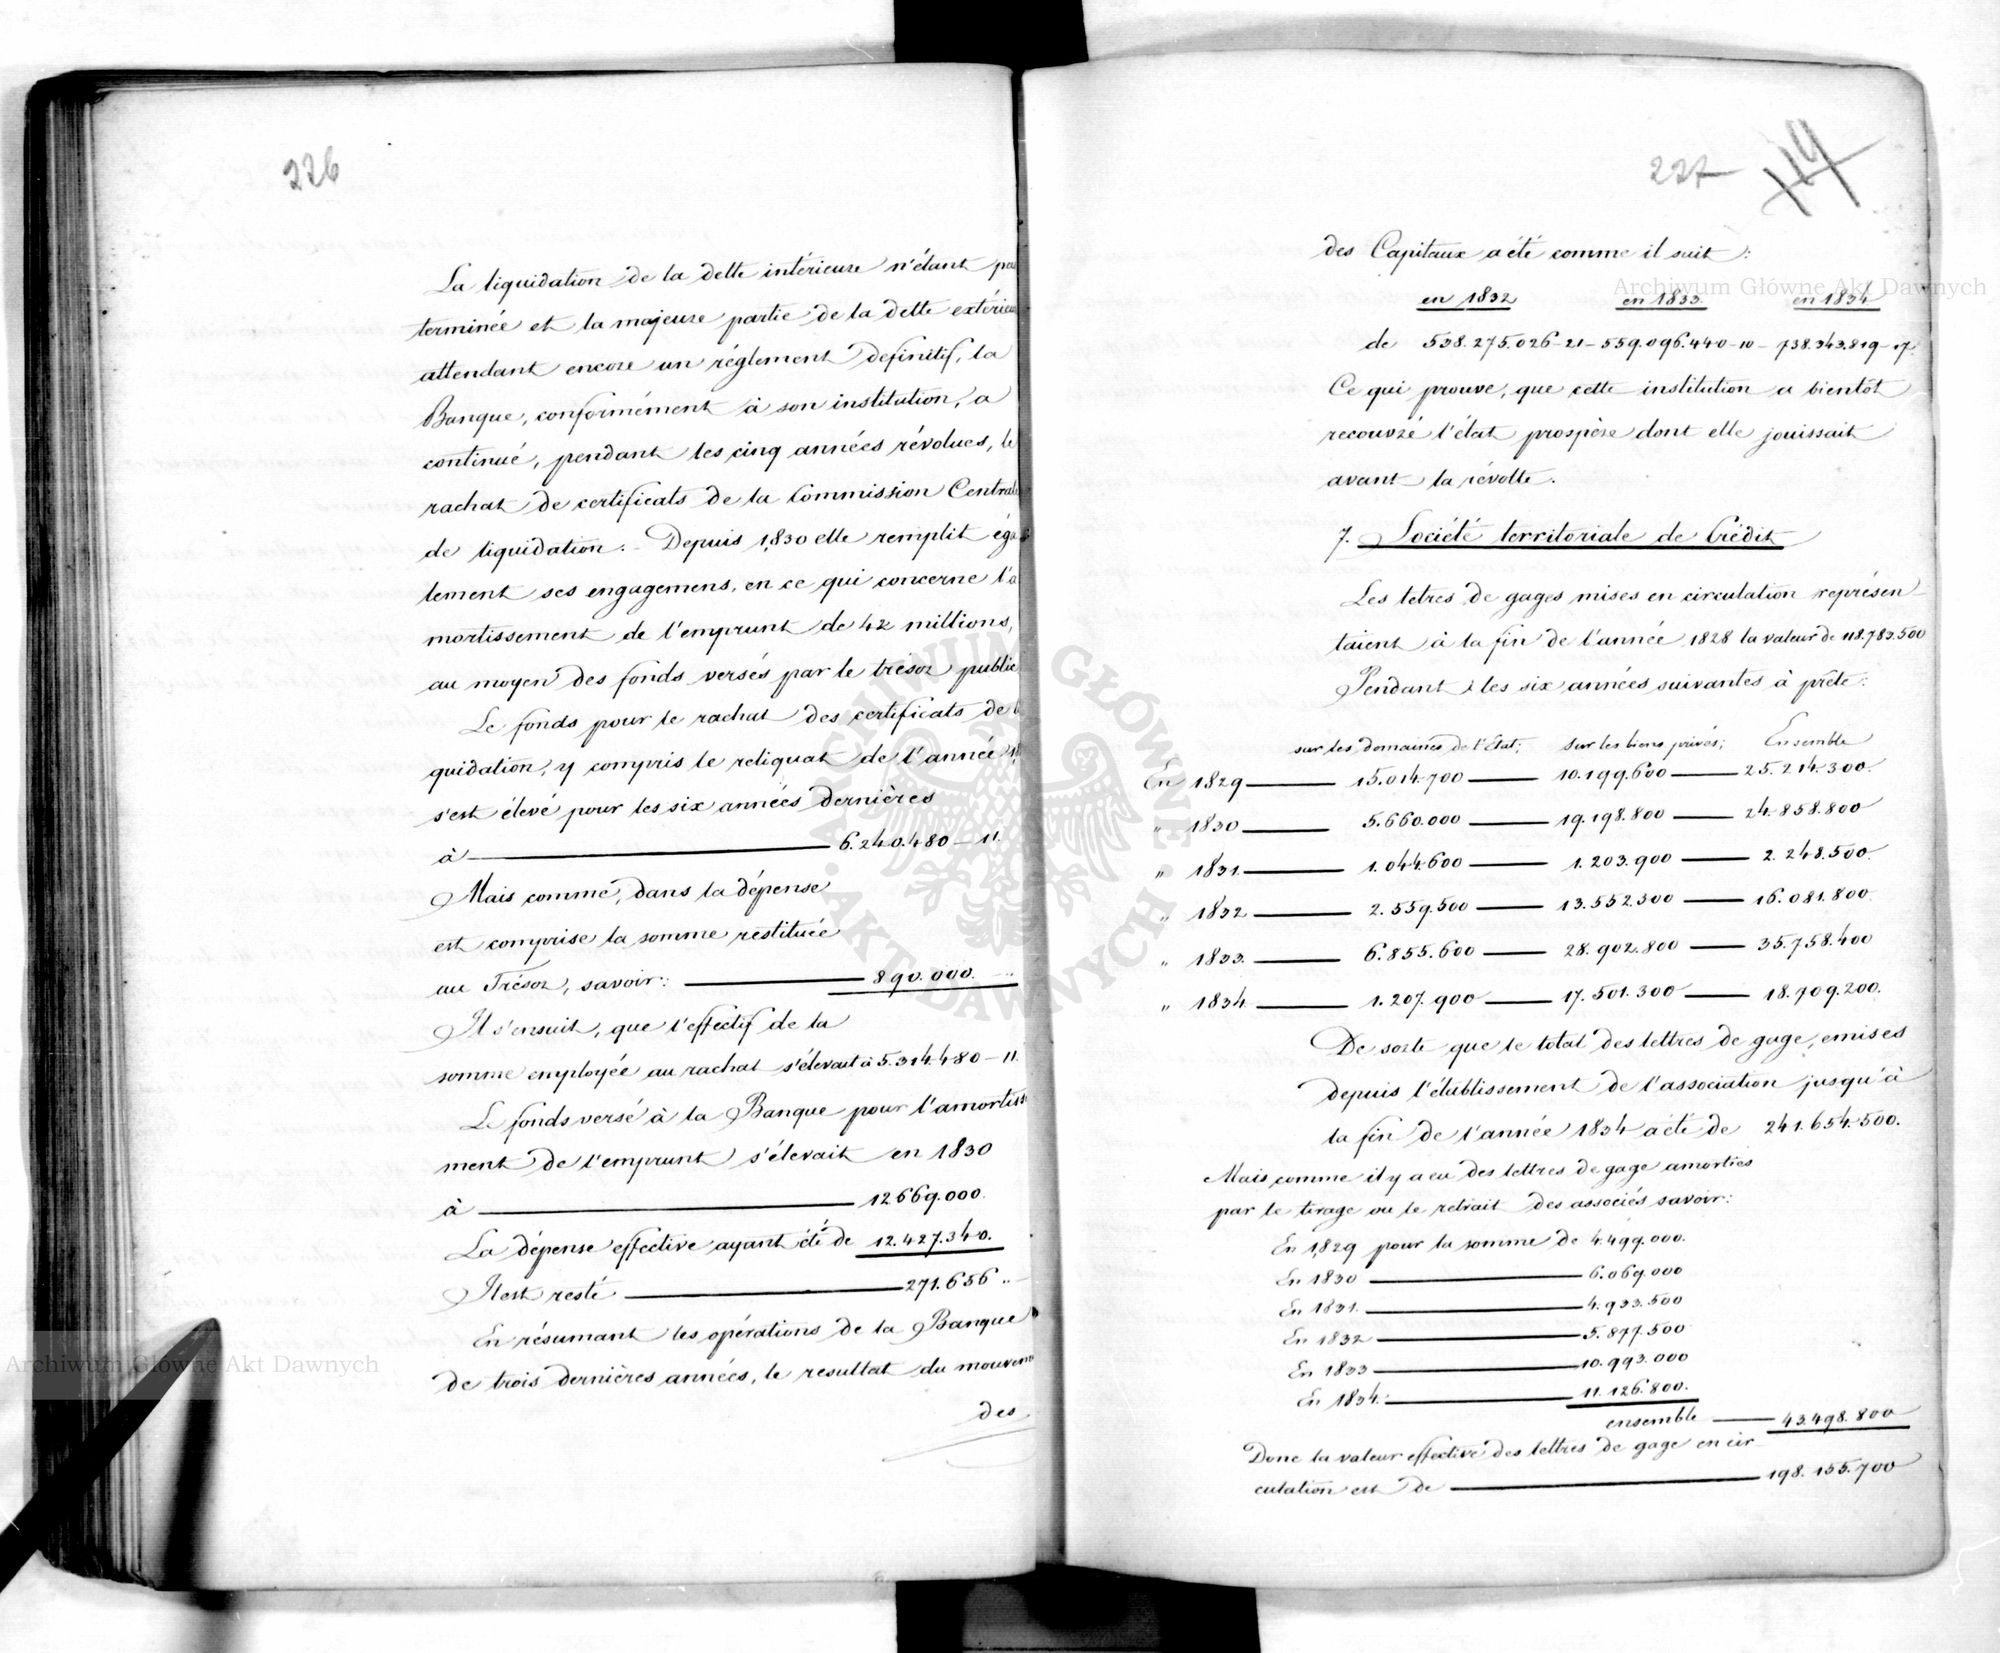 226
La liquidation de la dette intérieure n'étant pas
terminée et la majeure partie de la dette extérieu
attendant encore un réglement définitif, la
Banque, conformément à son institution, a
continué, pendant les cinq années révolues, le
rachat de certificats de la Commission Centrale
de liquidation. Depuis 1830 elle remplit éga
lement ses engagemens, en ce qui concerne l'a
mortissement de l'emprunt de 42 millions,
au moyen des fonds versés par le trésor public
Le fonds pour le rachat des certificats de li
quidation, y compris le reliquat de l'année
s'est élevé pour les six années dernières
à 6.240.480 - 11.
Mais comme, dans la dépense
est comprise la somme restituée
au Trésor, savoir: 890.000. "
Il s'ensuit, que l'effectif de la
somme employée au rachat s'élevait à 5.314.480 - 11.
Le fonds versé à la Banque pour l'amortisse
ment de l'emprunt s'élevait en 1830
à 12.669.000.
La dépense effective ayant été de 12.427.340.
Il est resté 271.656 "
En résumant les opérations de la Banque
de trois dernières années, le resultat du mouvem
des
227 114
des Capitaux a été comme il suit:
en 1832 en 1833. en 1834
de 538.275.026-21 - 559.096.440-10 - 738.343.819-17.
Ce qui prouve, que cette institution a bientôt
recouvré l'état prospère dont elle jouissait
avant la révolte.
7. Société territoriale de Crédit
Les letres de gages mises en circulation représen-
taient à la fin de l'année 1828 la valeur de 118.783.500
Pendant les six années suivantes à prête:
sur les domaines de l'Etat; sur les biens privés; Ensemble
En 1829 15.014.700 10.199.600 25.214.300.
" 1830 5.660.000 19.198.800 24.858.800
" 1831. 1.044.600 1.203.900 2.248.500.
" 1832 2.559.500 13.552.300 16.081.800.
" 1833. 6.855.600 28.902.800 35.758.400
" 1834 1.207.900 17.501.300 18.709.200.
De sorte que le total des lettres de gage, emises
depuis l'établissement de l'association jusqu'à
la fin de l'année 1834 a été de 241.654.500.
Mais comme il y a eu des lettres de gage amorties
par le tirage ou le retrait des associés savoir:
En 1829 pour la somme de 4.499.000.
En 1830 6.069.000
En 1831. 4.933.500
En 1832 5.877.500
En 1833 10.993.000
En 1834. 11.126.800.
ensemble 43.498.800
Donc la valeur effective des lettres de gage en cir-
culation est de 198.155.700
Archiwum Główne Akt Dawnych
Archiwum Główne Akt Dawnych
ARCHIWUM GŁÓWNE · AKT DAWNYCH ·